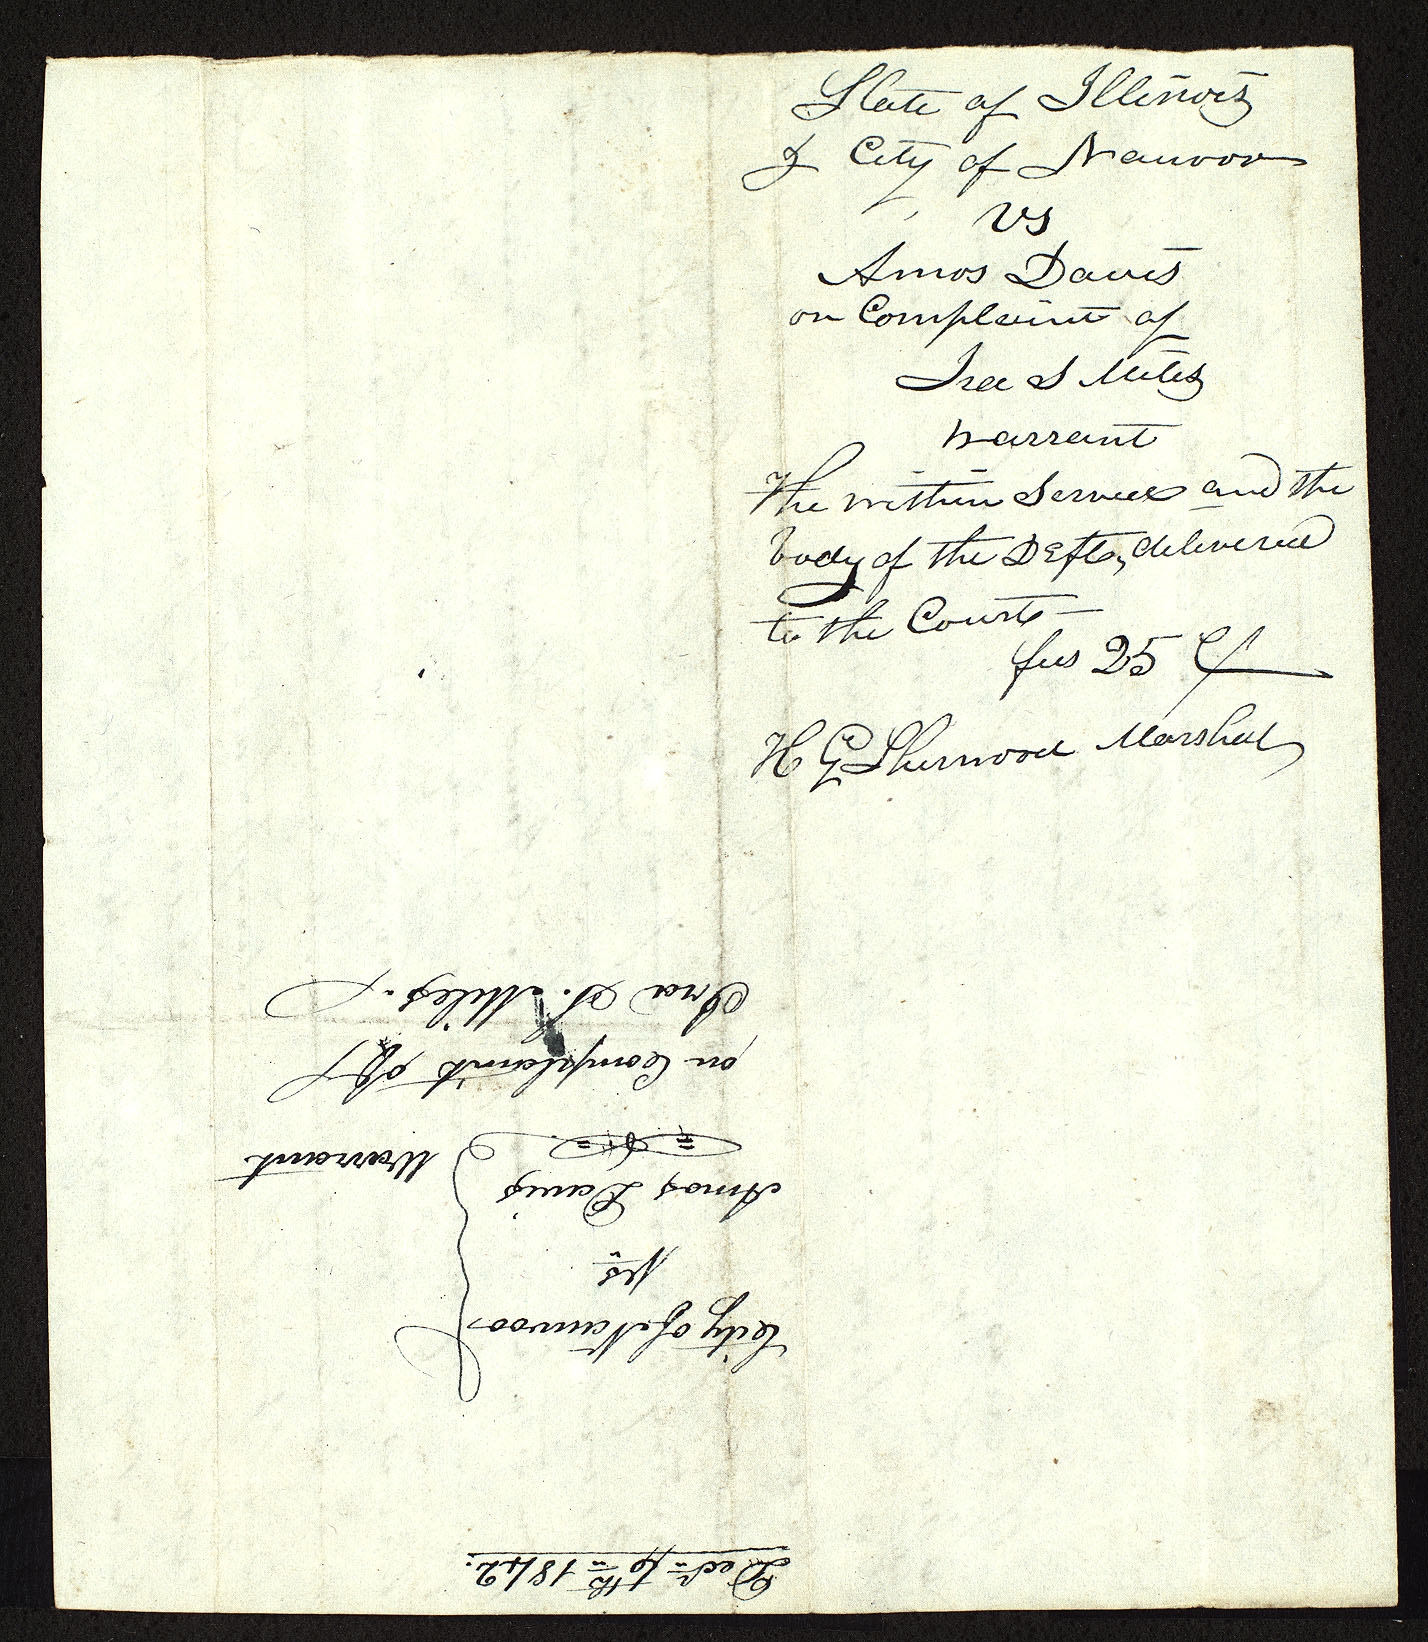 State of Illinois
& City of Nauvoo
vs
Amos Davis
on Complaint of
Ira S Miles
warrant
The within Served and the
body of the Deft, delivered
to the Court—
fees 25
H G Sherwood Marshal
Dec. 1842.
City of Nauvoo
vs.
Amos Davis
Warrant
on Complaint of
Ira S. Miles.